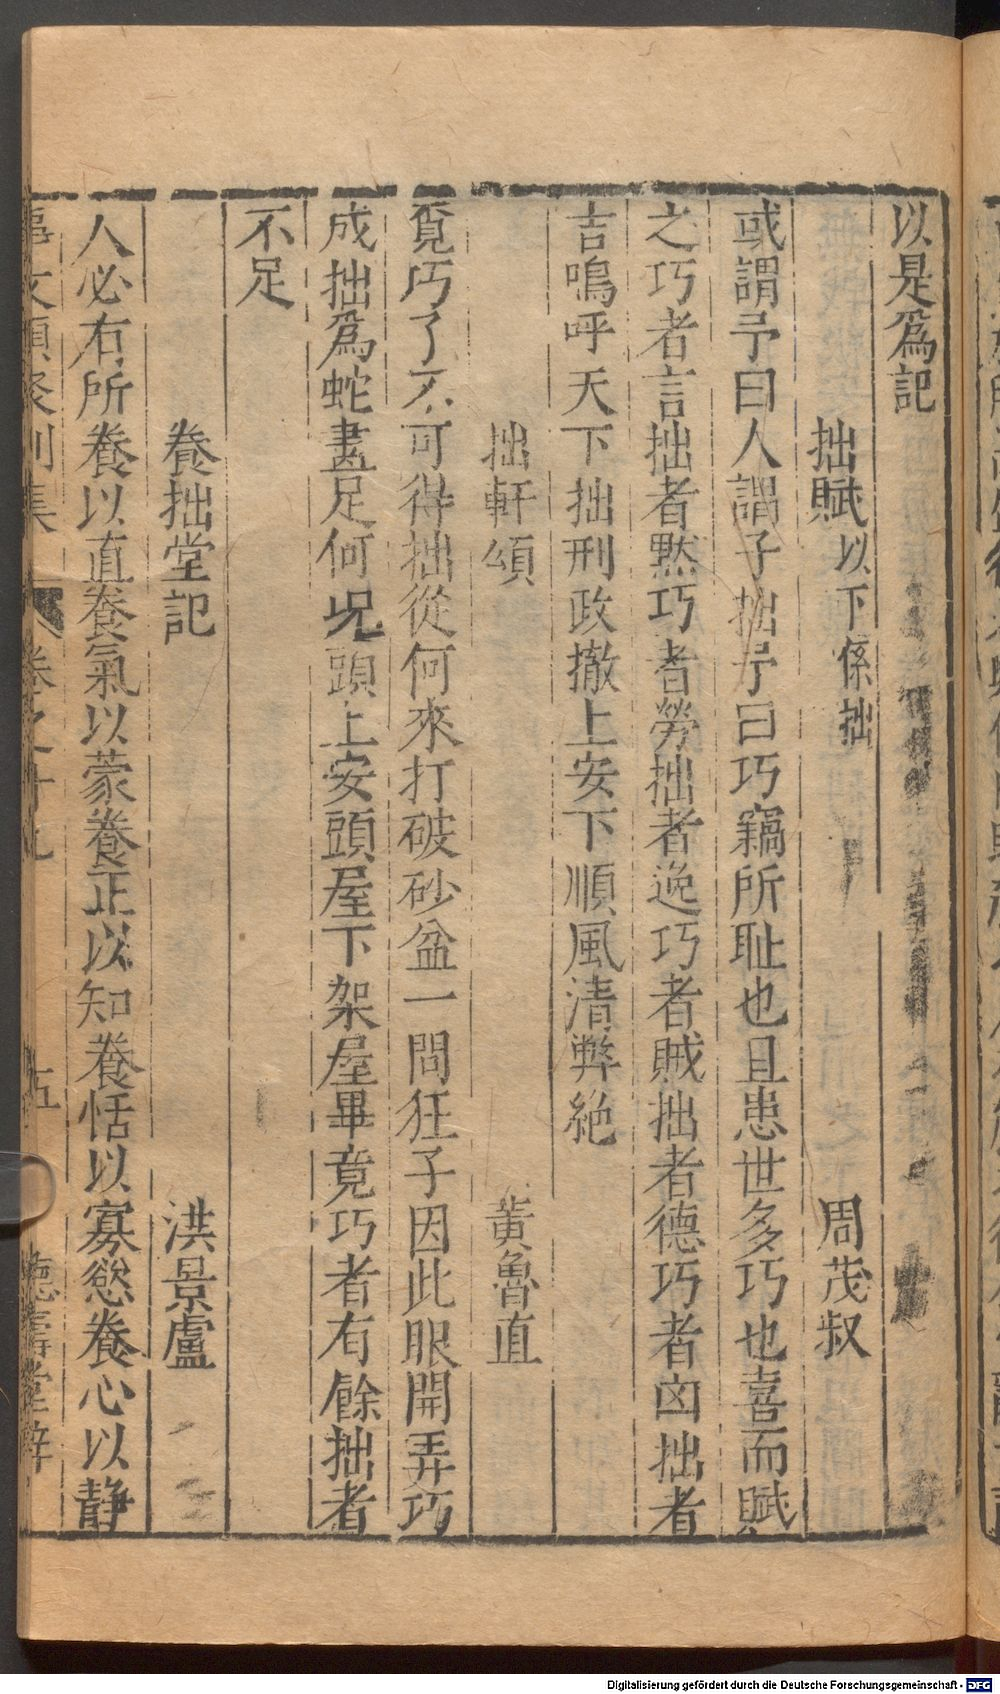 以是爲記
拙賦 以下係拙 周茂叔
或謂予曰人謂子拙予曰巧竊所耻也且患世多巧也喜而賦
之巧者言拙者黙巧者勞拙者逸巧者賊拙者德巧者凶拙者
吉嗚呼天下拙刑政撤上安下順風清弊絶
拙軒頌 黄魯直
覓巧了不可得拙從何來打破砂盆一問狂子因此眼開弄巧
成拙爲蛇畫足何况頭上安頭屋下架屋畢竟巧者有餘拙者
不足
養拙堂記 洪景盧
人必有所養以直養氣以蒙養正以知養恬以寡慾養心以静
事文類聚別集 卷之 五 德壽堂梓
Digitalisierung gefördert durch die Deutsche Forschungsgemeinschaft - DFG